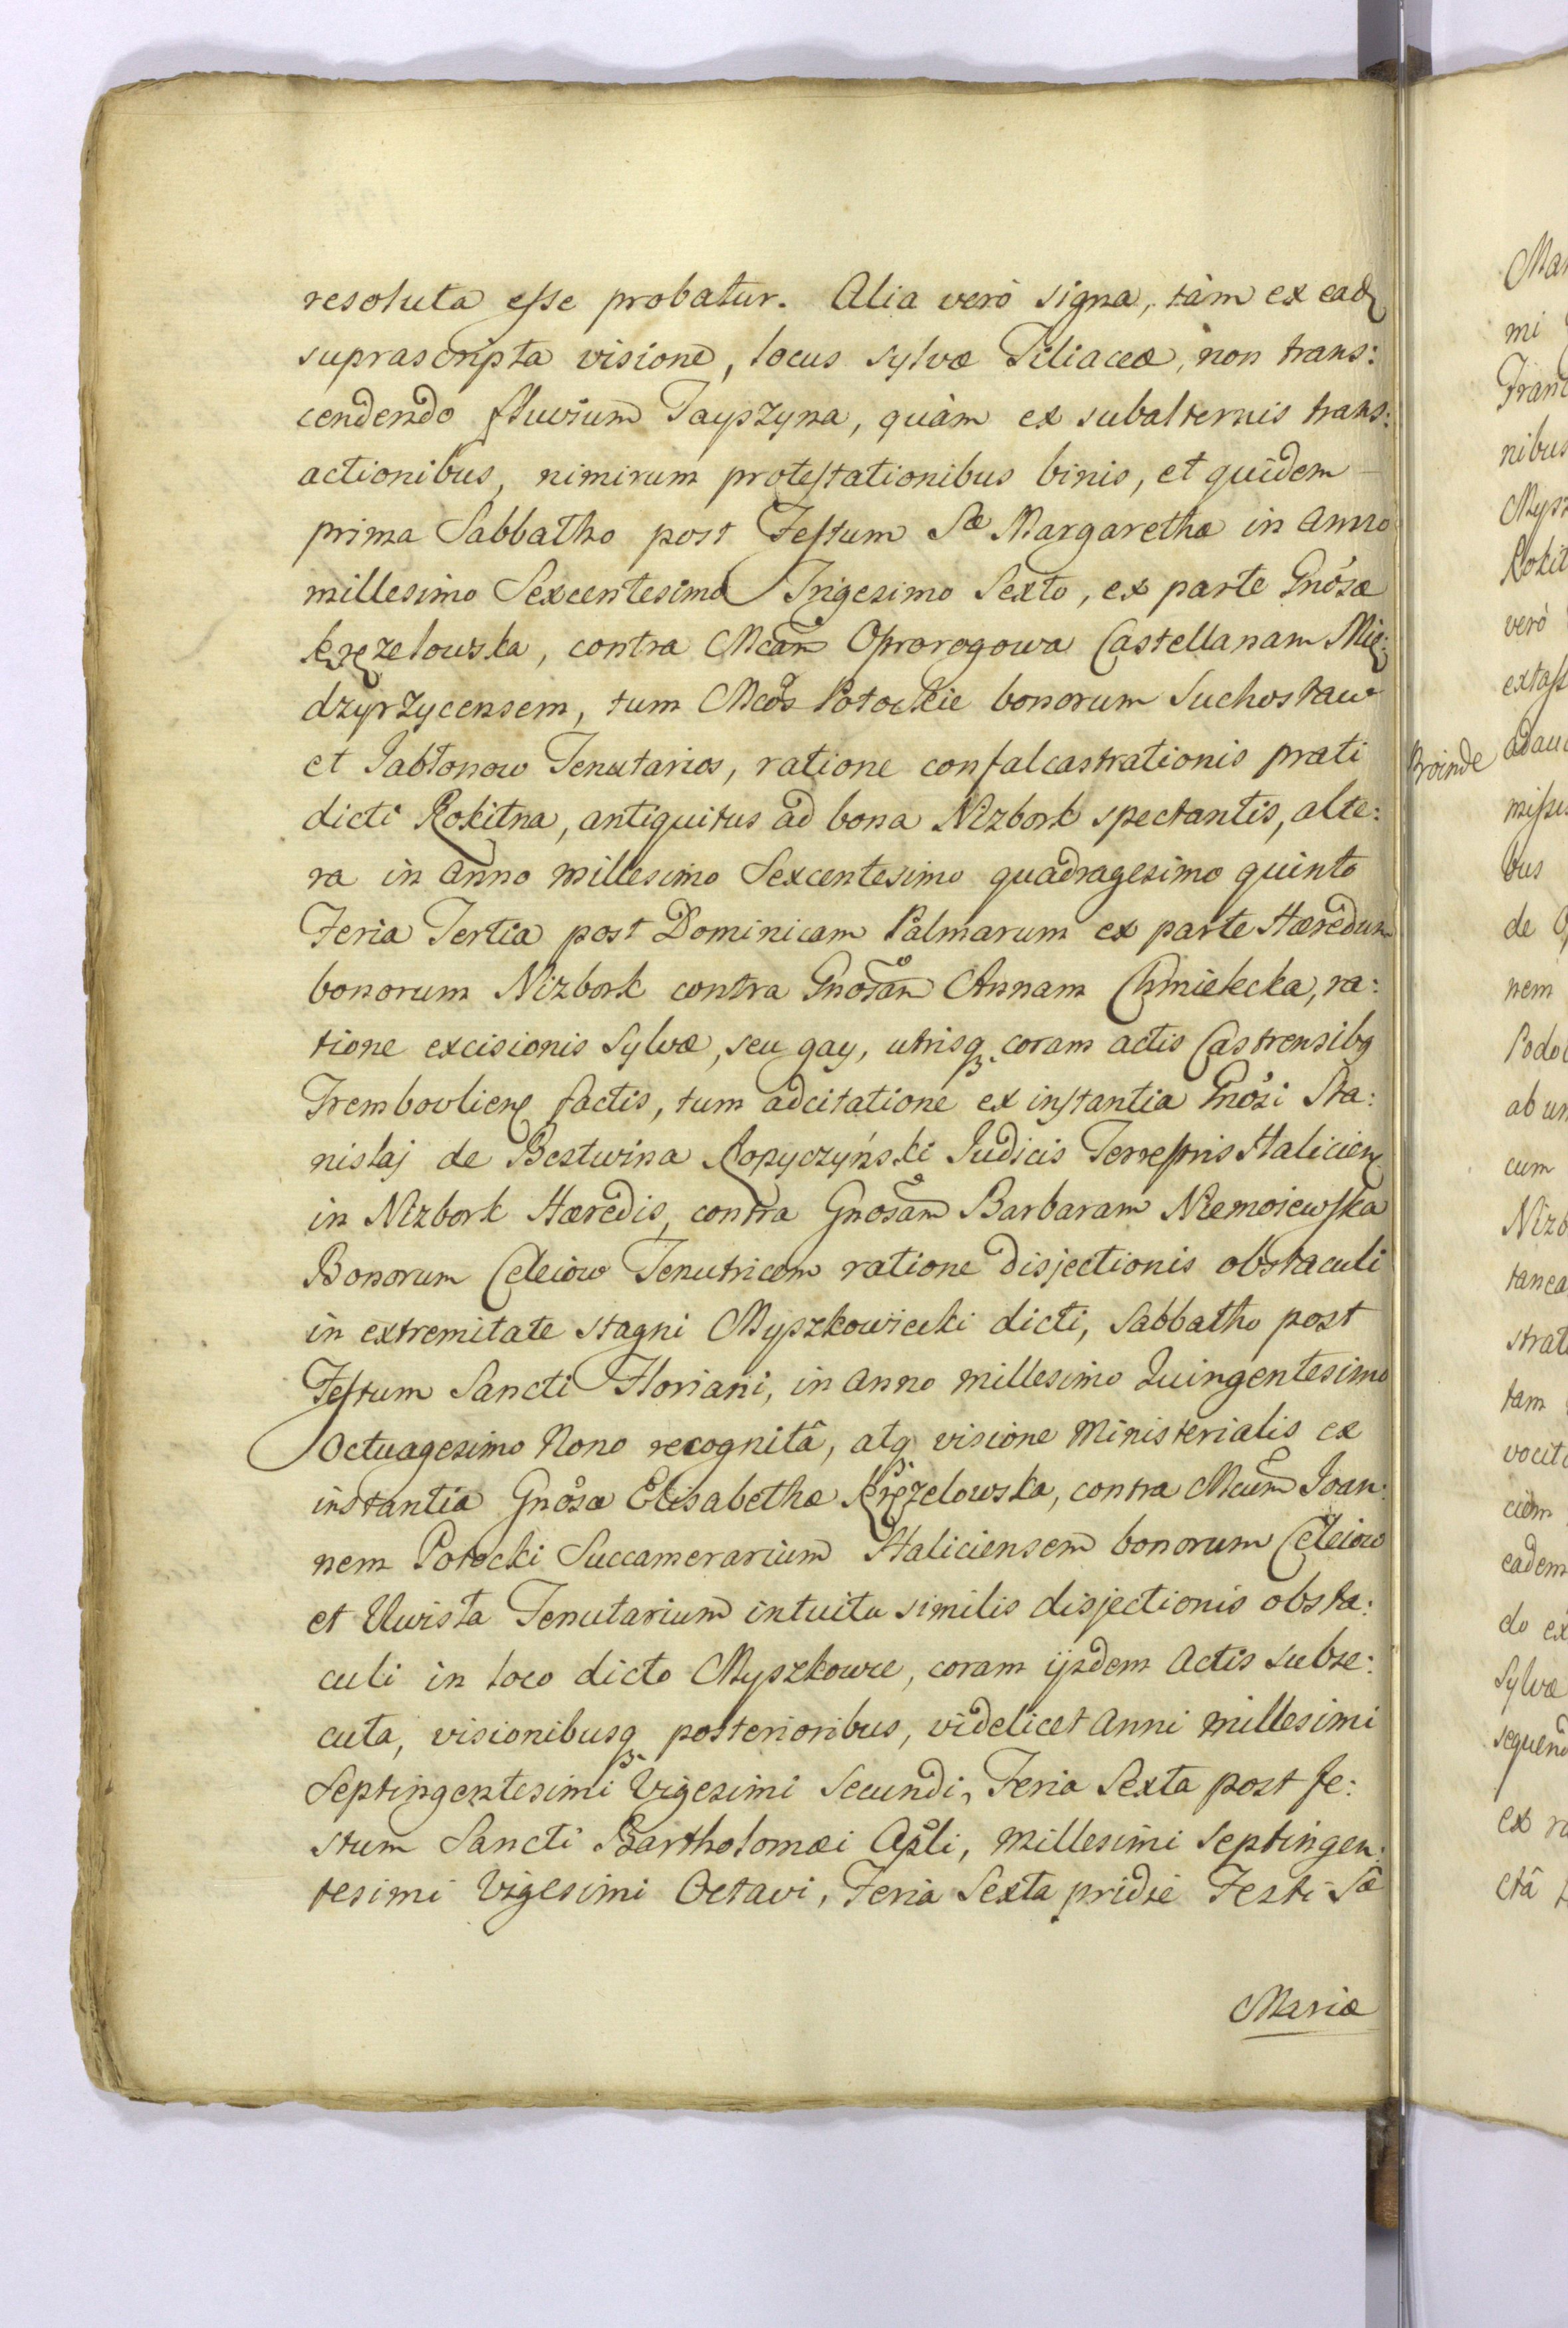 resoluta esse probatur. Alia verò signa, tàm ex ead
suprascripta visione, locus Sylvæ Tiliaceæ, non trans:
cendendo fluvium Tayszyna, quàm ex subalternis trans:
actionibus, nimirum protestationibus binis, et quidem
prima Sabbatho post Festum Sæ Margarethæ in Anno
millesimo Sexcentesimo Trigesimo Sexto, ex parte Gnosæ
Kręzelowska, contra Mcam Oprorogowa Castellanam Mię:
dzyrzycensem, tum Mcos Potockie bonorum Suchostaw
et Jabłonow Tenutarios, ratione confalcastrationis prati
dicti Rokitna, antiquitus ad bona Nizbork spectantis, alte:
ra in Anno millesimo Sexcentesimo quadragesimo quinto
Feria Tertia post Dominicam Palmarum ex parte Hæredum
bonorum Nizbork contra Gnosam Annam Chmielecka, ra:
tione excisionis Sylvæ, seu gay, utrisq coram actis Castrensibq
Trembovlien factis, tum adcitatione ex instantia Gnosi Sta:
nislaj de Bestwina Kopyczyński Judicis Terrestris Halicien
in Nizbork Hæredis, contra Gnosam Barbaram Niemojewska
Bonorum Celeiow Tenutricem ratione disjectionis obstaculi
in extremitate stagni Myszkowiecki dicti, Sabbatho post
Festum Sancti Floriani, in Anno millesimo Quingentesimo
Octuagesimo Nono recognitâ, atq visione Ministerialis ex
instantia Gnosæ Elisabethæ Kręzelowska, contra Mcum Joan:
nem Potocki Succamerarium Haliciensem bonorum Celeiow
et Uwisła Tenutarium intuitu similis disjectionis obsta:
culi in loco dicto Myszkowce, coram ijsdem Actis subse:
cuta, visionibusq posterioribus, videlicet Anni Millesimi
Septingentesimi Vigesimi Secundi, Feria Sexta post fe:
stum Sancti Bartholomæi Apli, Millesimi Septingen:
tesimi Vigesimi Octavi, Feria Sexta pridie Festi Sæ
Mariæ
Proinde
mi
nibus
verò
bus
nem
ab un
cum
tam
eadem
Sylvæ